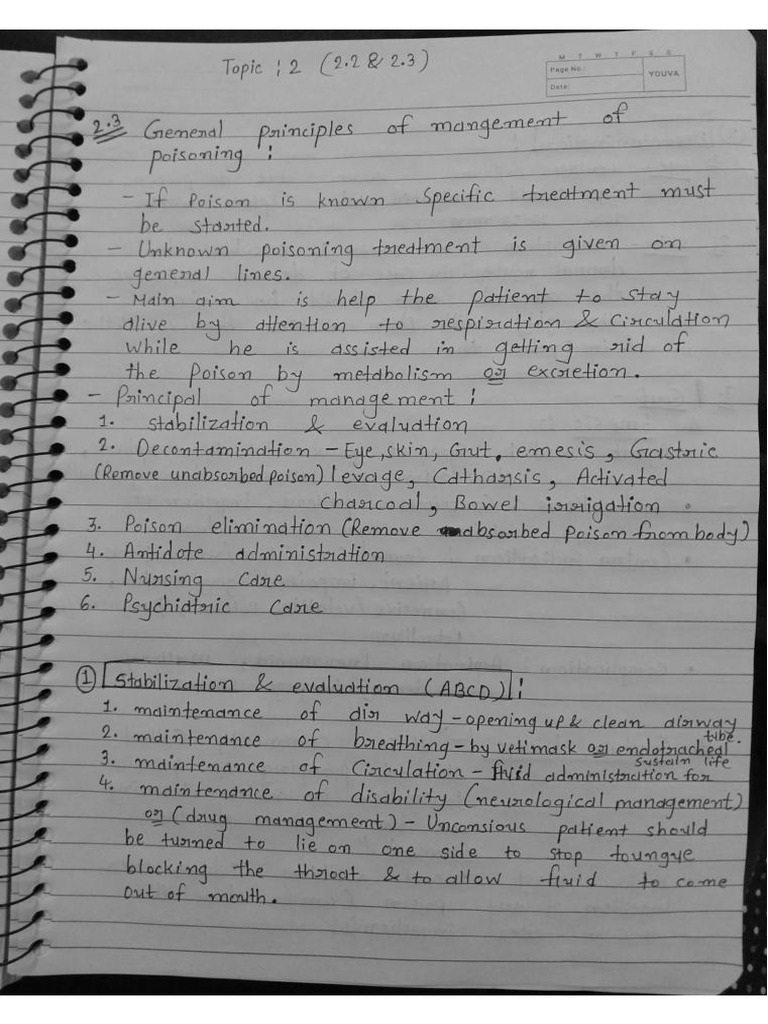 Topic : 2 (2.2 & 2.3)
M T W T F S S
Page No.:
YOUVA
Date:
2.3 General principles of mangement of
poisoning :
- If Poison is known Specific treatment must
be started.
- Unknown poisoning treatment is given on
general lines.
- Main aim is help the patient to stay
alive by attention to respiration & Circulation
While he is assisted in getting rid of
the Poison by metabolism or excretion.
- Principal of management :
1. Stabilization & evaluation
2. Decontamination - Eye, skin, Gut, emesis, Gastric
(Remove unabsorbed poison) levage, Catharsis, Activated
charcoal, Bowel irrigation.
3. Poison elimination (Remove absorbed Poison from body)
4. Antidote administration
5. Nursing Care
6. Psychiatric Care
1 Stabilization & evaluation (ABCD) :
1. maintenance of air way - opening up & clean airway
2. maintenance of breathing - by vetimask or endotracheal tube.
3. maintenance of Circulation - fluid administration for sustain life
4. maintenance of disability (neurological management)
or (drug management) - Unconsious patient should
be turned to lie on one side to stop toungue
blocking the throat & to allow fluid to come
out of mouth.